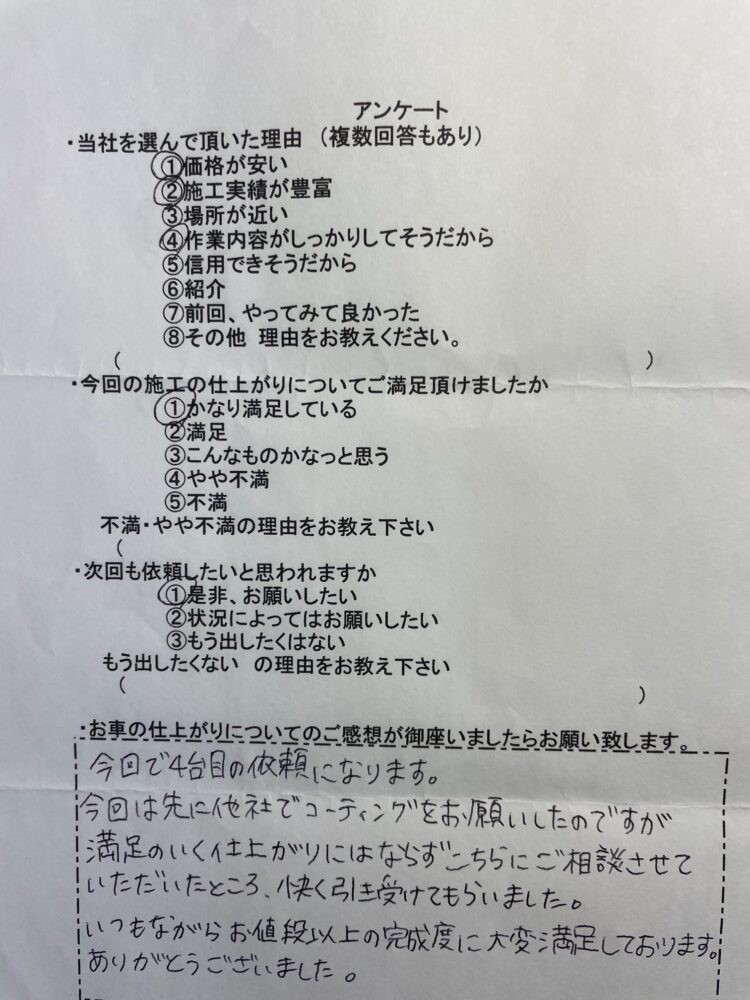 アンケート
・当社を選んで頂いた理由 (複数回答もあり)
①価格が安い
②施工実績が豊富
③場所が近い
④作業内容がしっかりしてそうだから
⑤信用できそうだから
⑥紹介
⑦前回、やってみて良かった
⑧その他 理由をお教えください。
( )
・今回の施工の仕上がりについてご満足頂けましたか
①かなり満足している
②満足
③こんなものかなっと思う
④やや不満
⑤不満
不満・やや不満の理由をお教え下さい
(
・次回も依頼したいと思われますか
①是非、お願いしたい
②状況によってはお願いしたい
③もう出したくはない
もう出したくない の理由をお教え下さい
( )
・お車の仕上がりについてのご感想が御座いましたらお願い致します。
今回で4台目の依頼になります。
今回は先に他社でコーティングをお願いしたのですが
満足のいく仕上がりにはならずこちらにご相談させて
いただいたところ、快く引き受けてもらいました。
いつもながらお値段以上の完成度に大変満足しております。
ありがとうございました。